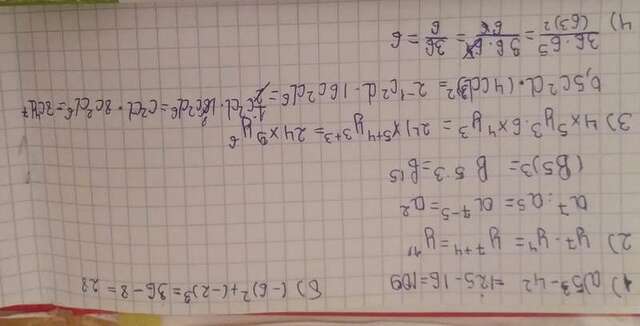 1) a) 5³-4² = 125-16=109   б) (-6)²+(-2)³=36-8=28
2) y⁷·y⁴=y⁷⁺⁴=y¹¹
a⁷:a⁵=a⁷⁻⁵=a²
(B⁵)³=B⁵·³=B¹⁵
3) 4x⁵y³·6x⁴y³=24x⁵⁺⁴y³⁺³=24x⁹y⁶
0,5c²d·(4cd³)²=2⁻¹c²d·16c²d⁶=½c²d·16c²d⁶=c²d·8c²d⁶=8c⁴d⁷
4) 36·6⁵/(6³)²=36·6⁵/6⁶=36/6=6